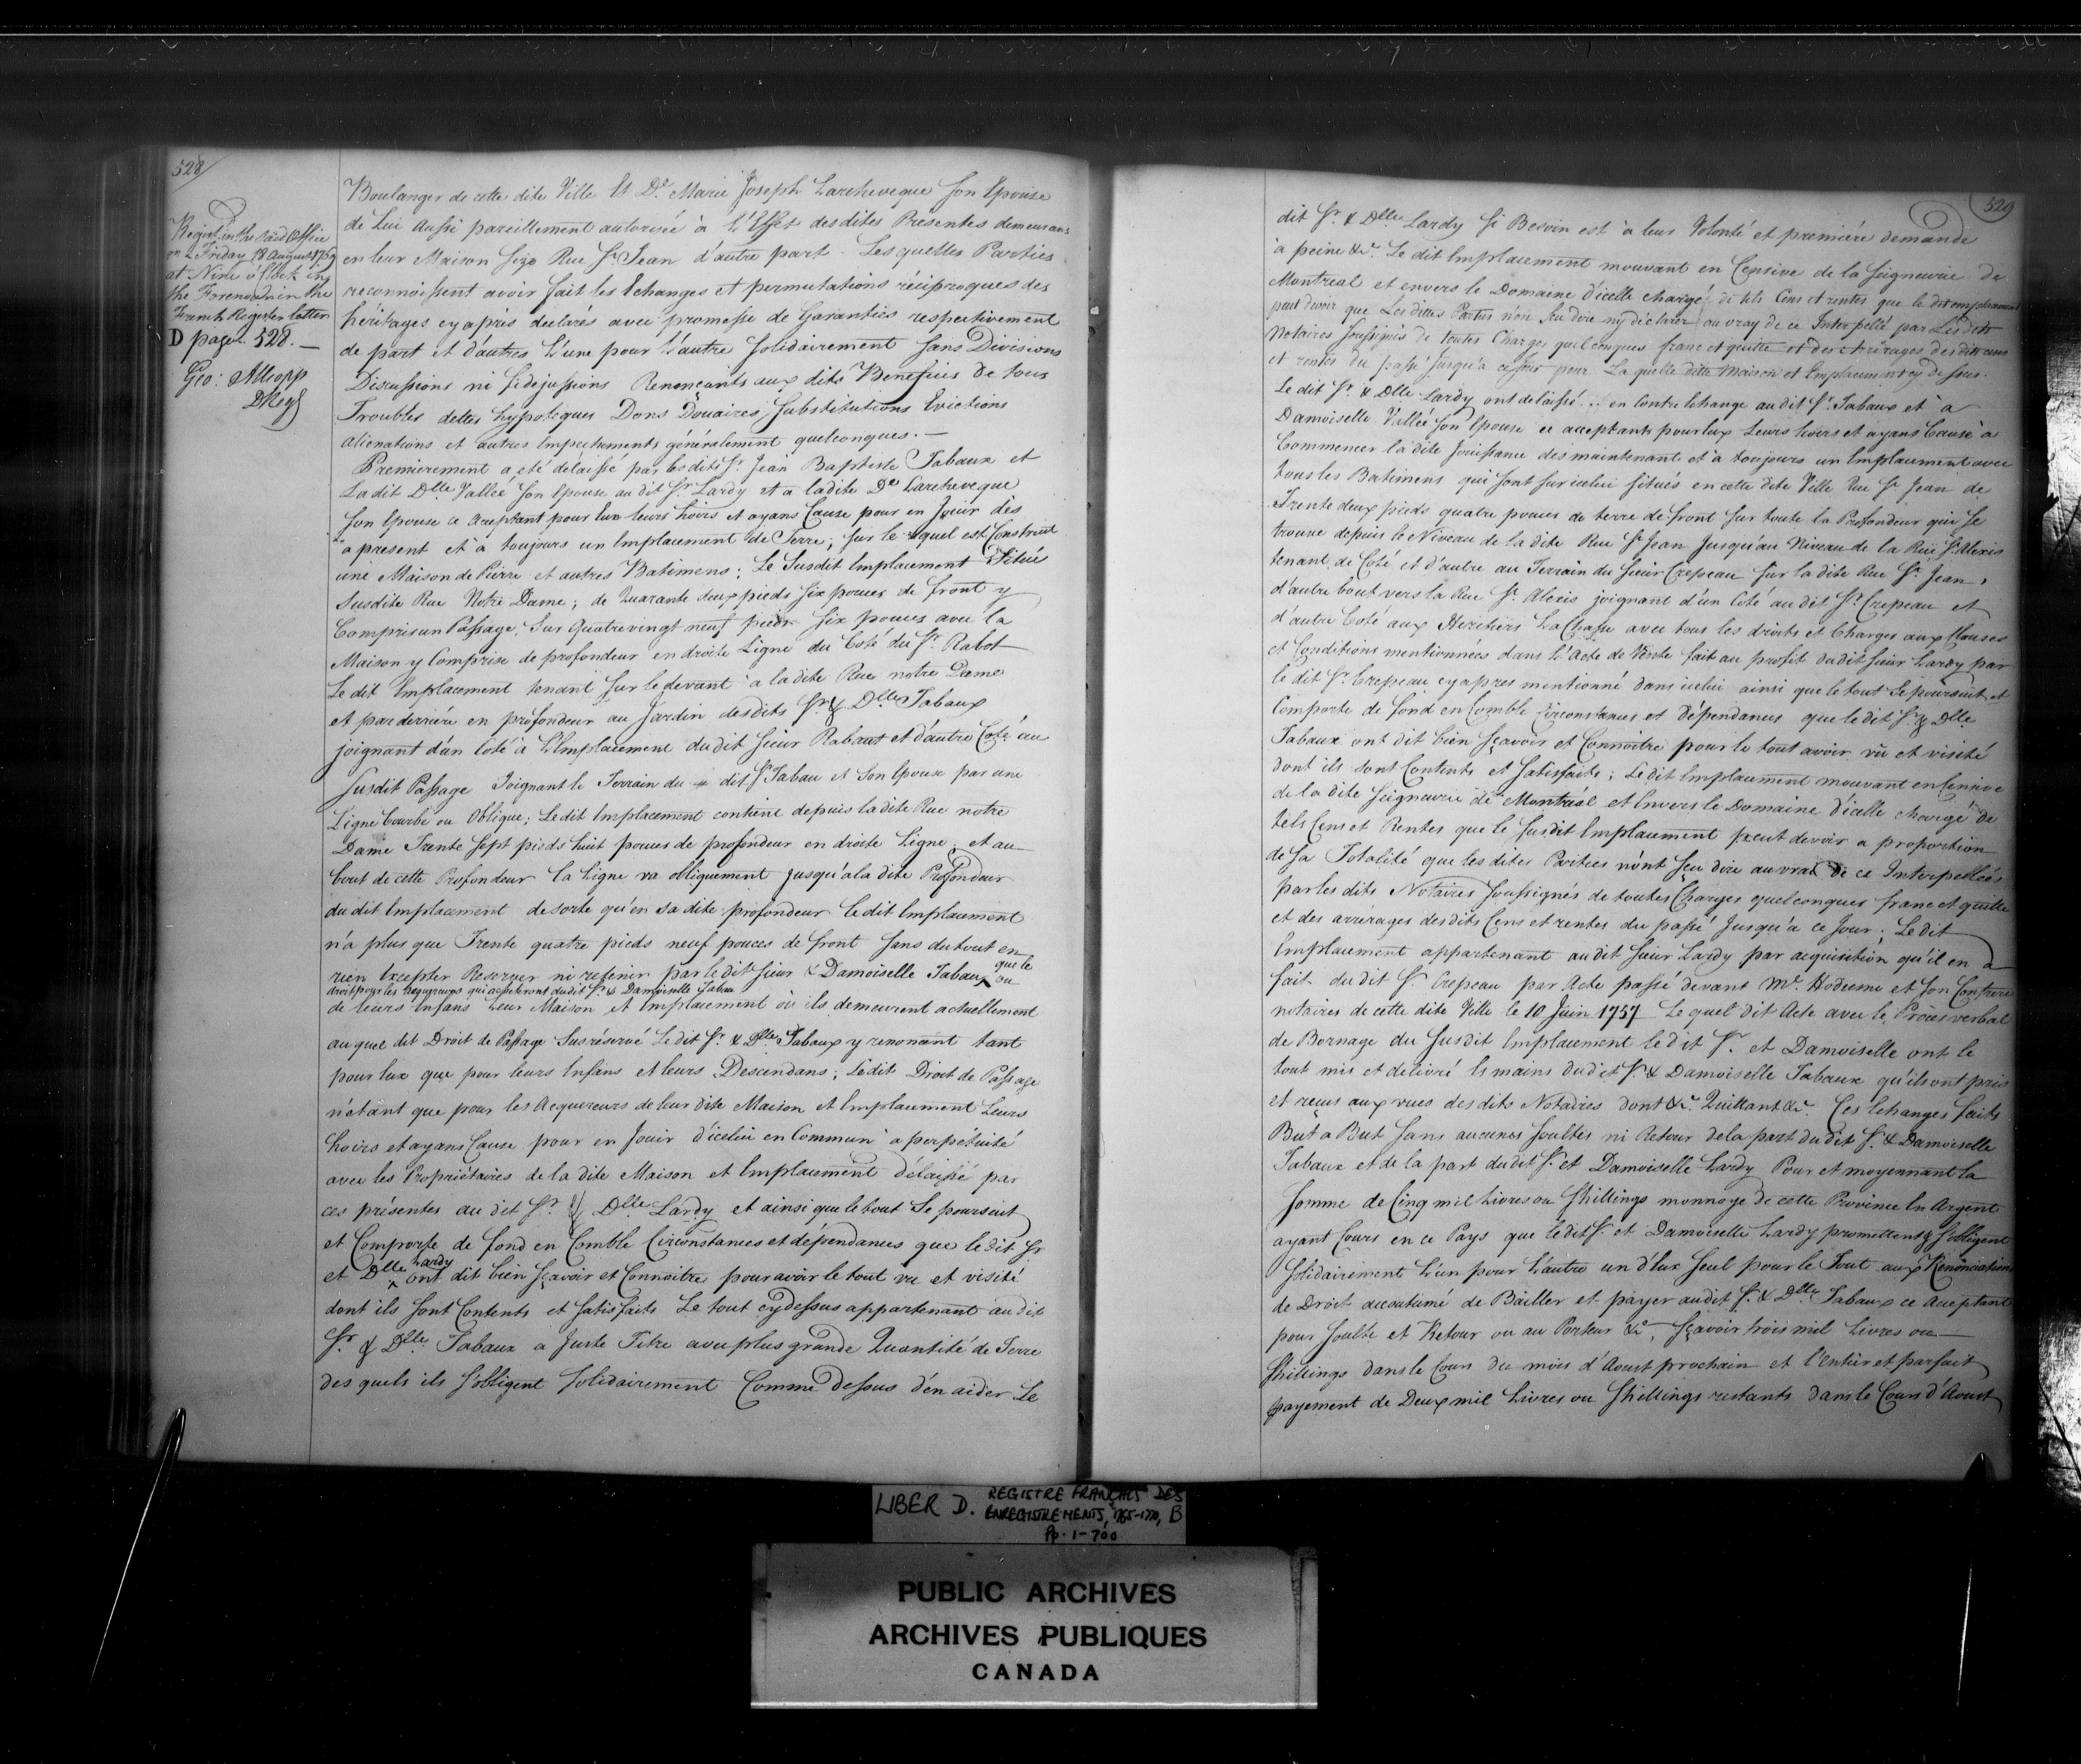 528
Regist. in the said Office
on Friday 18 August 1769
at Nine o'Clock in
the Forenoon in the
French Register letter
D page 528. —
Geo: Allsopp
DRegr
Boulanger de cette dite Ville Et De. Marie Joseph Larcheveque Son Epouse
de Lui Aussi pareillement autorisée à L'Effet desdites Présentes demeurans
en leur Maison Size Rue St. Jean d'autre part. Lesquelles Parties
reconnoissent avoir fait les Echanges et permutations réciproques des
héritages cy après declarés avec promesse de Garanties respectivement
de part et d'autres L'une pour L'autre Solidairement Sans Divisions
Discussions ni fidejussions Renonçants aux dits Benefices De tous
Troubles dettes hypoteques Dons Douaires, Substitutions Evictions
alienations et autres Empechements généralement quelconques. —
Premierement a eté délaissé par lesdits Sr. Jean Baptiste Tabaux et
La dit Dlle Vallée Son Epouse au dit Sr. Lardy et a ladite De Larcheveque
Son Epouse ce Acceptant pour Eux leurs hoirs et ayans Cause pour en Jouir dès
à present et à toujours un Emplacement de Terre, Sur le quel est Construit
une Maison de Pierre et autres Batimens; Le Susdit Emplacement Situé
Susdite Rue Notre Dame; de Quarante deux pieds Six pouces de front y
Compris un Passage, Sur Quatrevingt neuf pieds Six pouces avec la
Maison y Comprise de profondeur en droite Ligne du Coté du Sr. Rabot
Le dit Emplacement tenant Sur le devant à la dite Rue notre Dame
et par derriére en profondeur au Jardin desdits Sr. & Dlle Tabaux
joignant d'un Coté à L'Emplacement du dit Sieur Rabaut et d'autre Coté au
Susdit Passage Joignant le Terrain du dit Sr. Tabau et Son Epouse par une
Ligne Courbe ou Oblique; Ledit Emplacement contient depuis ladite Rue notre
Dame Trente Sept pieds huit pouces de profondeur en droite Ligne; et au
bout de cette Profondeur la Ligne va obliquement jusqu'à la dite Profondeur
du dit Emplacement de sorte qu'en sa dite profondeur le dit Emplacement
n'a plus que Trente quatre pieds neuf pouces de front Sans du tout en
rien Excepter Reserver ni retenir par le dit Sieur & Damoiselle Tabaux que le
droit pour les acquereurs qui acheteront dudit Sr. & Damoiselle Tabau ou
de leurs Enfans Leur Maison et Emplacement où ils demeurent actuellement
au quel dit Droit de Passage Susréservé Ledit Sr. & Dlle Tabaux y renoncent tant
pour Eux que pour leurs Enfans et leurs Descendans; Ledit Droit de Passage
n'étant que pour les Acquereurs de leur dite Maison et Emplacement Leurs
hoirs et ayans Cause pour en Jouir d'icelui en Commun à perpétuité
avec les Propriétaires de la dite Maison et Emplacement délaissé par
ces présentes au dit Sr. & Dlle Lardy et ainsi que le tout Se poursuit
et Comporte de fond en Comble Circonstances et dépendances que le dit Sr
et Dlle Lardy ont dit bien Sçavoir et Connoitre pour avoir le tout vu et visité
dont ils Sont Contents et Satisfaits Le tout cy dessus appartenant au dit
Sr. & Dlle. Tabaux a Juste Titre avec plus grande Quantité de Terre
des quels ils S'obligent Solidairement Comme Dessus d'en aider Le
529
dit Sr. & Dlle Lardy Si Besoin est à leur Volonté et premiére demande
à peine &c. Le dit Emplacement mouvant en Censive de la Seigneurie de
Montreal et envers le Domaine d'icelle chargé de tels Cens et rentes que le dit emplacement
peut devoir que Les dittes Parties n'ont Seu dire ny déclarer au vray de ce Interpellé par Les dits
Notaires Soussignés de toutes Charges quelconques franc et quitte et des Arrérages desdits cens
et rentes du passé jusqu'à ce jour pour La quelle ditte Maison et Emplacement cy dessus.
Le dit Sr. & Dlle Lardy ont delaissé .. en Contre Echange au dit Sr. Tabaux et à
Damoiselle Vallée Son Epouse ce acceptants pour Eux Leurs hoirs et ayans Cause à
Commencer la dite Jouissance des maintenant et à toujours un Emplacement avec
tous les Batimens qui sont sur icelui situés en cette dite Ville Rue St Jean de
Trente deux pieds quatre pouces de terre de front Sur toute la Profondeur qui Se
trouve depuis le Niveau de la dite Rue St. Jean Jusqu'au Niveau de la Rue St. Alexis
tenant de Coté et d'autre au Terrain du Sieur Crepeau Sur la dite Rue St. Jean,
d'autre bout vers la Rue St. Alexis joignant d'un Coté au dit Sr. Crepeau et
d'autre Coté aux Heritiers LaChasse avec tous les droits et Charges aux Clauses
et Conditions mentionnées dans L'Acte de Vente fait au profit du dit Sieur Lardy par
le dit Sr. Crepeau cy apres mentionné dans icelui ainsi que le tout Se poursuit et
Comporte de fond en Comble Circonstances et Dépendances que le dit Sr & Dlle
Tabaux ont dit bien Sçavoir et Connoitre pour le tout avoir vû et visité
dont ils sont Contents et Satisfaits; Le dit Emplacement mouvant en Censive
de la dite Seigneurie de Montréal et Envers le Domaine d'icelle chargé de
tels Cens et Rentes que le Susdit Emplacement peut devoir a proportion
de sa Totalité que les dites Parties n'ont Sçeu dire au vrai de ce Interpellées
par les dits Notaires Soussignés de toutes Charges quelconques franc et quitte
et des arrérages desdits Cens et rentes du passé Jusqu'à ce Jour; Le dit
Emplacement appartenant au dit Sieur Lardy par acquisition qu'il en a
fait du dit Sr. Crepeau par Acte passé devant Mr. Hodienne et Son Confrere
notaires de cette dite Ville le 10 Juin 1757 Le quel dit Acte avec le Procès verbal
de Bornage du Susdit Emplacement le dit Sr. et Damoiselle ont le
tout mis et delivré Es mains dudit Sr. & Damoiselle Tabaux qu'ils ont pris
et reçus aux vues des dits Notaires dont &c. Quittant &c. Ces Echanges faits
But a But Sans aucunes Soultes ni Retour de la part du dit Sr. & Damoiselle
Tabaux et de la part du dit Sr. et Damoiselle Lardy Pour et moyennant la
Somme de Cinq mil Livres ou Shillings monnoye de cette Province En Argent
ayant Cours en ce Pays que le dit Sr. et Damoiselle Lardy promettent & S'obligent
Solidairement L'un pour L'autre un d'Eux Seul pour le Tout aux Renonciations
de Droit accoutumé de Bailler et payer au dit Sr. & Dlle Tabaux ce Acceptant
pour Soulte et Retour ou au Porteur &c, Sçavoir trois mil Livres ou
Shillings dans le Cours du mois d'Aoust prochain et l'entier et parfait
payement de Deux mil Livres ou Shillings restants dans le Cours d'Aoust
LIBER D. REGISTRE FRANÇAIS DES
ENREGISTREMENTS, 1765-1770, B
Pp. 1-700
PUBLIC ARCHIVES
ARCHIVES PUBLIQUES
CANADA